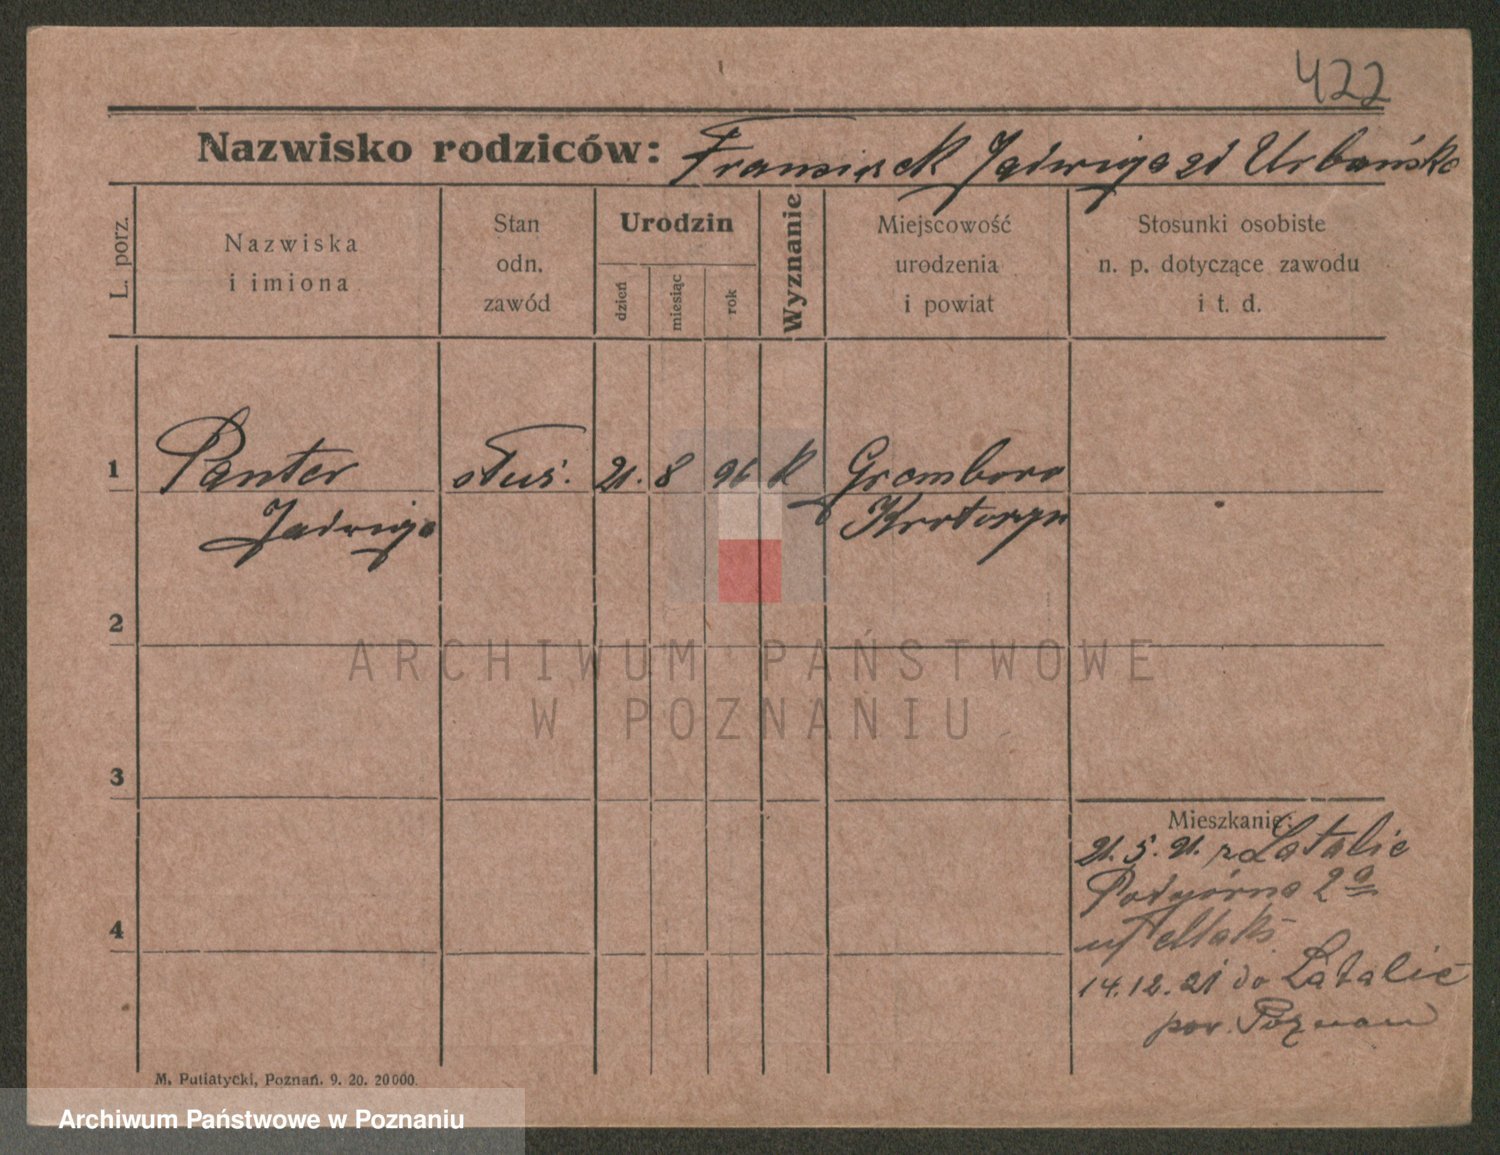 422
Nazwisko rodziców: Franciszek Jadwiga zd Urbańska
L. porz.
Nazwiska
i imiona
Stan
odn.
zawód
Urodzin
dzień
miesiąc
rok
Wyznanie
Miejscowość
urodzenia
i powiat
Stosunki osobiste
n. p. dotyczące zawodu
i t. d.
1 Panter służ. 21. 8 96 k
Jadwiga Krotoszyn
2
ARCHIWUM PAŃSTWOWE
W POZNANIU
3
Mieszkanie:
21. 5. 21. z Latalic
Podgórna 2a
4
14.12.21 do Latalic
pow. Poznań
M. Putiatycki, Poznań. 9. 20. 20000.
Archiwum Państwowe w Poznaniu